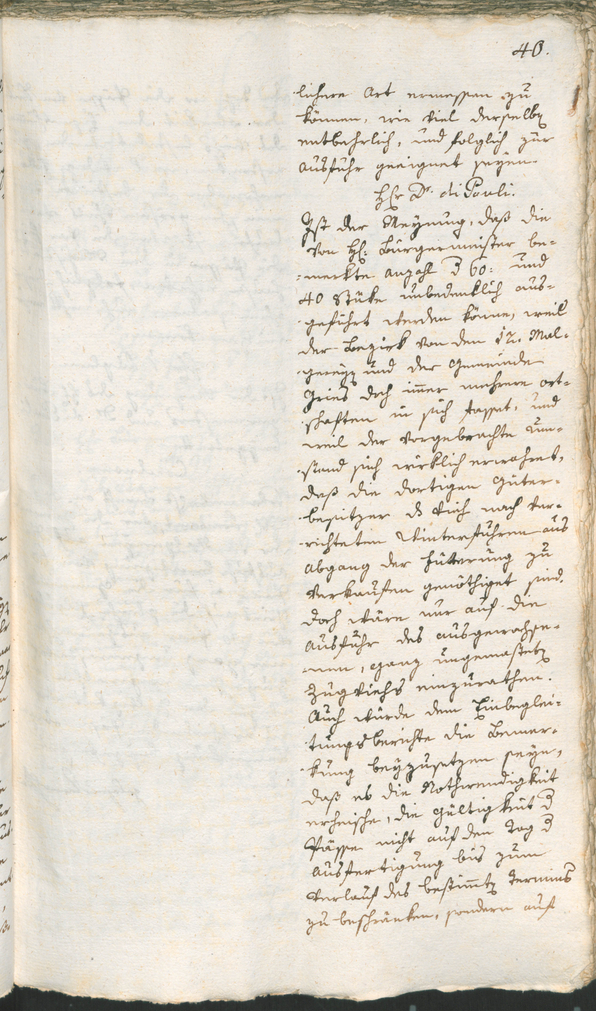 40.
lichere Art ermessen zu
können, wie viel derselben
entbehrlich, und folglich zur
Ausfuhr geeignet seyen.
Hr. Dr. di Pauli.
Ist der Meynung, daß die
von H: Bürgermeister be-
merkte Anzahl d 60: und
40 Stüke unbedenklich aus-
geführt werden könne, weil
der Bezirk von den 12. Mal-
greyen und der Gemeinde
Gries doch immer mehrere Ort-
schaften in sich fasset, und
weil der vorgebrachte Um-
stand sich wirklich erwahret,
daß die dortigen Güter-
besitzer ds Vieh nach ver-
richteten Winterfuhren aus
Abgang der Fütterung zu
verkaufen genöthiget sind.
Doch wäre nur auf die
Ausfuhr des ausgewachse-
nen, ganz ungemästeten
Zugviehs einzurathen.
Auch würde dem Einbeglei-
tungsberichte die Bemer-
kung beyzusetzen seyn,
daß es die Nothwendigkeit
erheische, die Gültigkeit d
Pässe nicht auf den Tag d
Ausfertigung bis zum
Verlauf des bestimmten Termins
zu beschränken, sondern auf